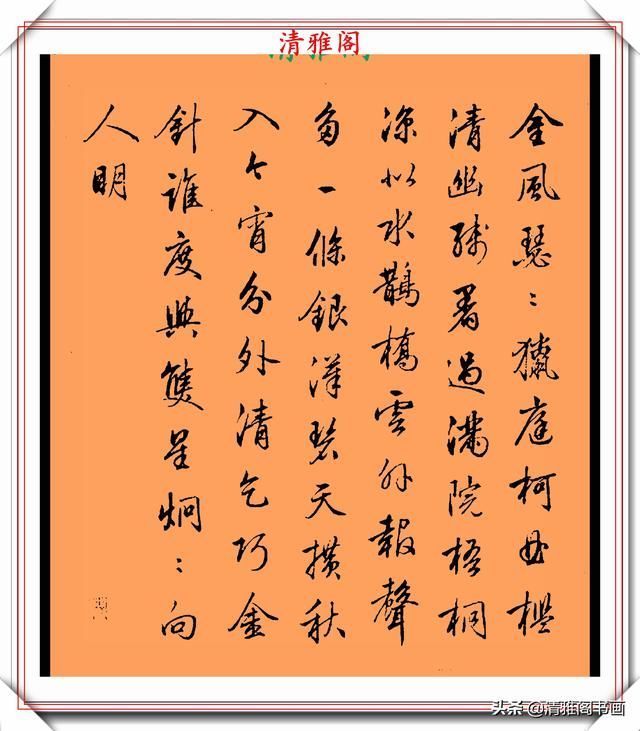 清雅阁
金風瑟〻獵庭柯曲檻
清幽殘暑過滿院梧桐
涼似水鵲橋雲外報聲
多一條銀漢碧天橫秋
入今宵分外清乞巧金
針誰度與雙星炯〻向
人明
头条@清雅阁书画